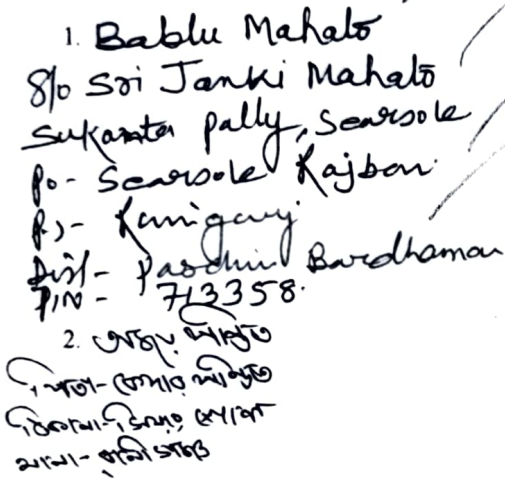 1. Bablu Mahato
S/o Sri Janki Mahato
Sukanta Pally, Searsole
Po- Searsole Rajbari
P.S- Raniganj
Dist- Paschim Bardhaman
PIN- 713358.
2.
পিতা-
ঠিকানা-
থানা- রানীগঞ্জ